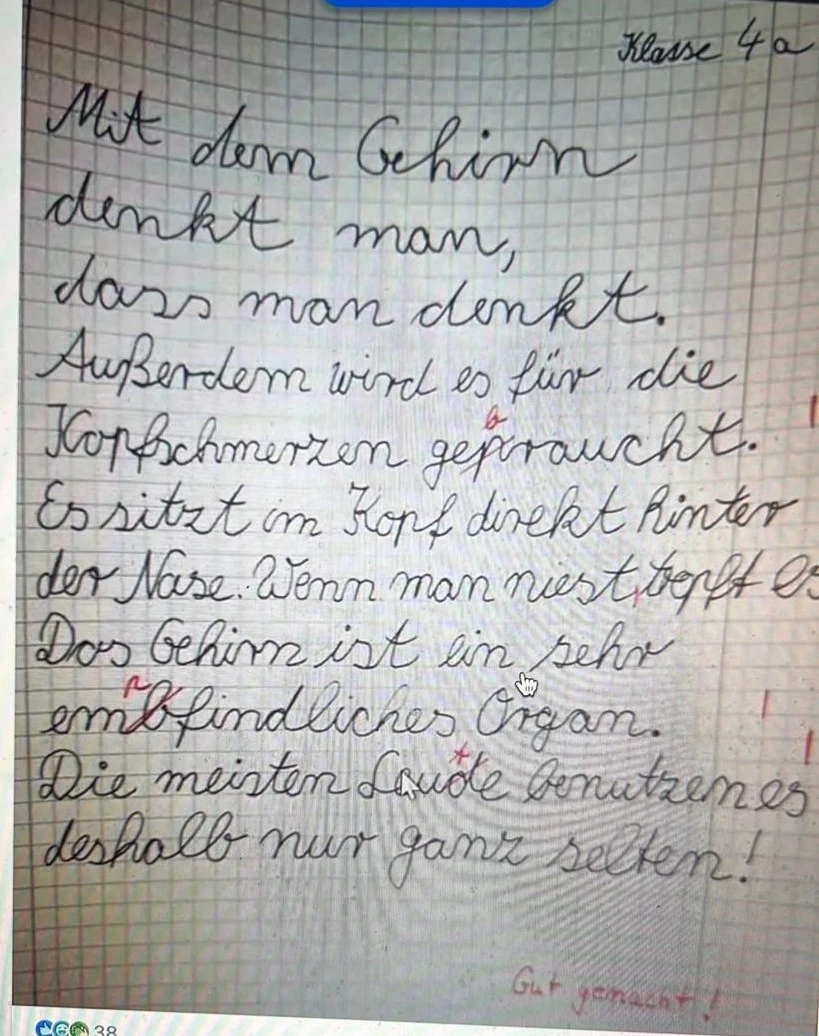 Klasse 4a
Mit dem Gehirn
denkt man,
dass man denkt.
Außerdem wird es für die
b
Kopfschmerzen gepraucht.
Es sitzt im Kopf direkt hinter
der Nase. Wenn man niest, tropft es
Das Gehirn ist ein sehr
p
embfindliches Organ.
t
Die meisten Leude benutzen es
deshalb nur ganz selten!
Gut gemacht!
38